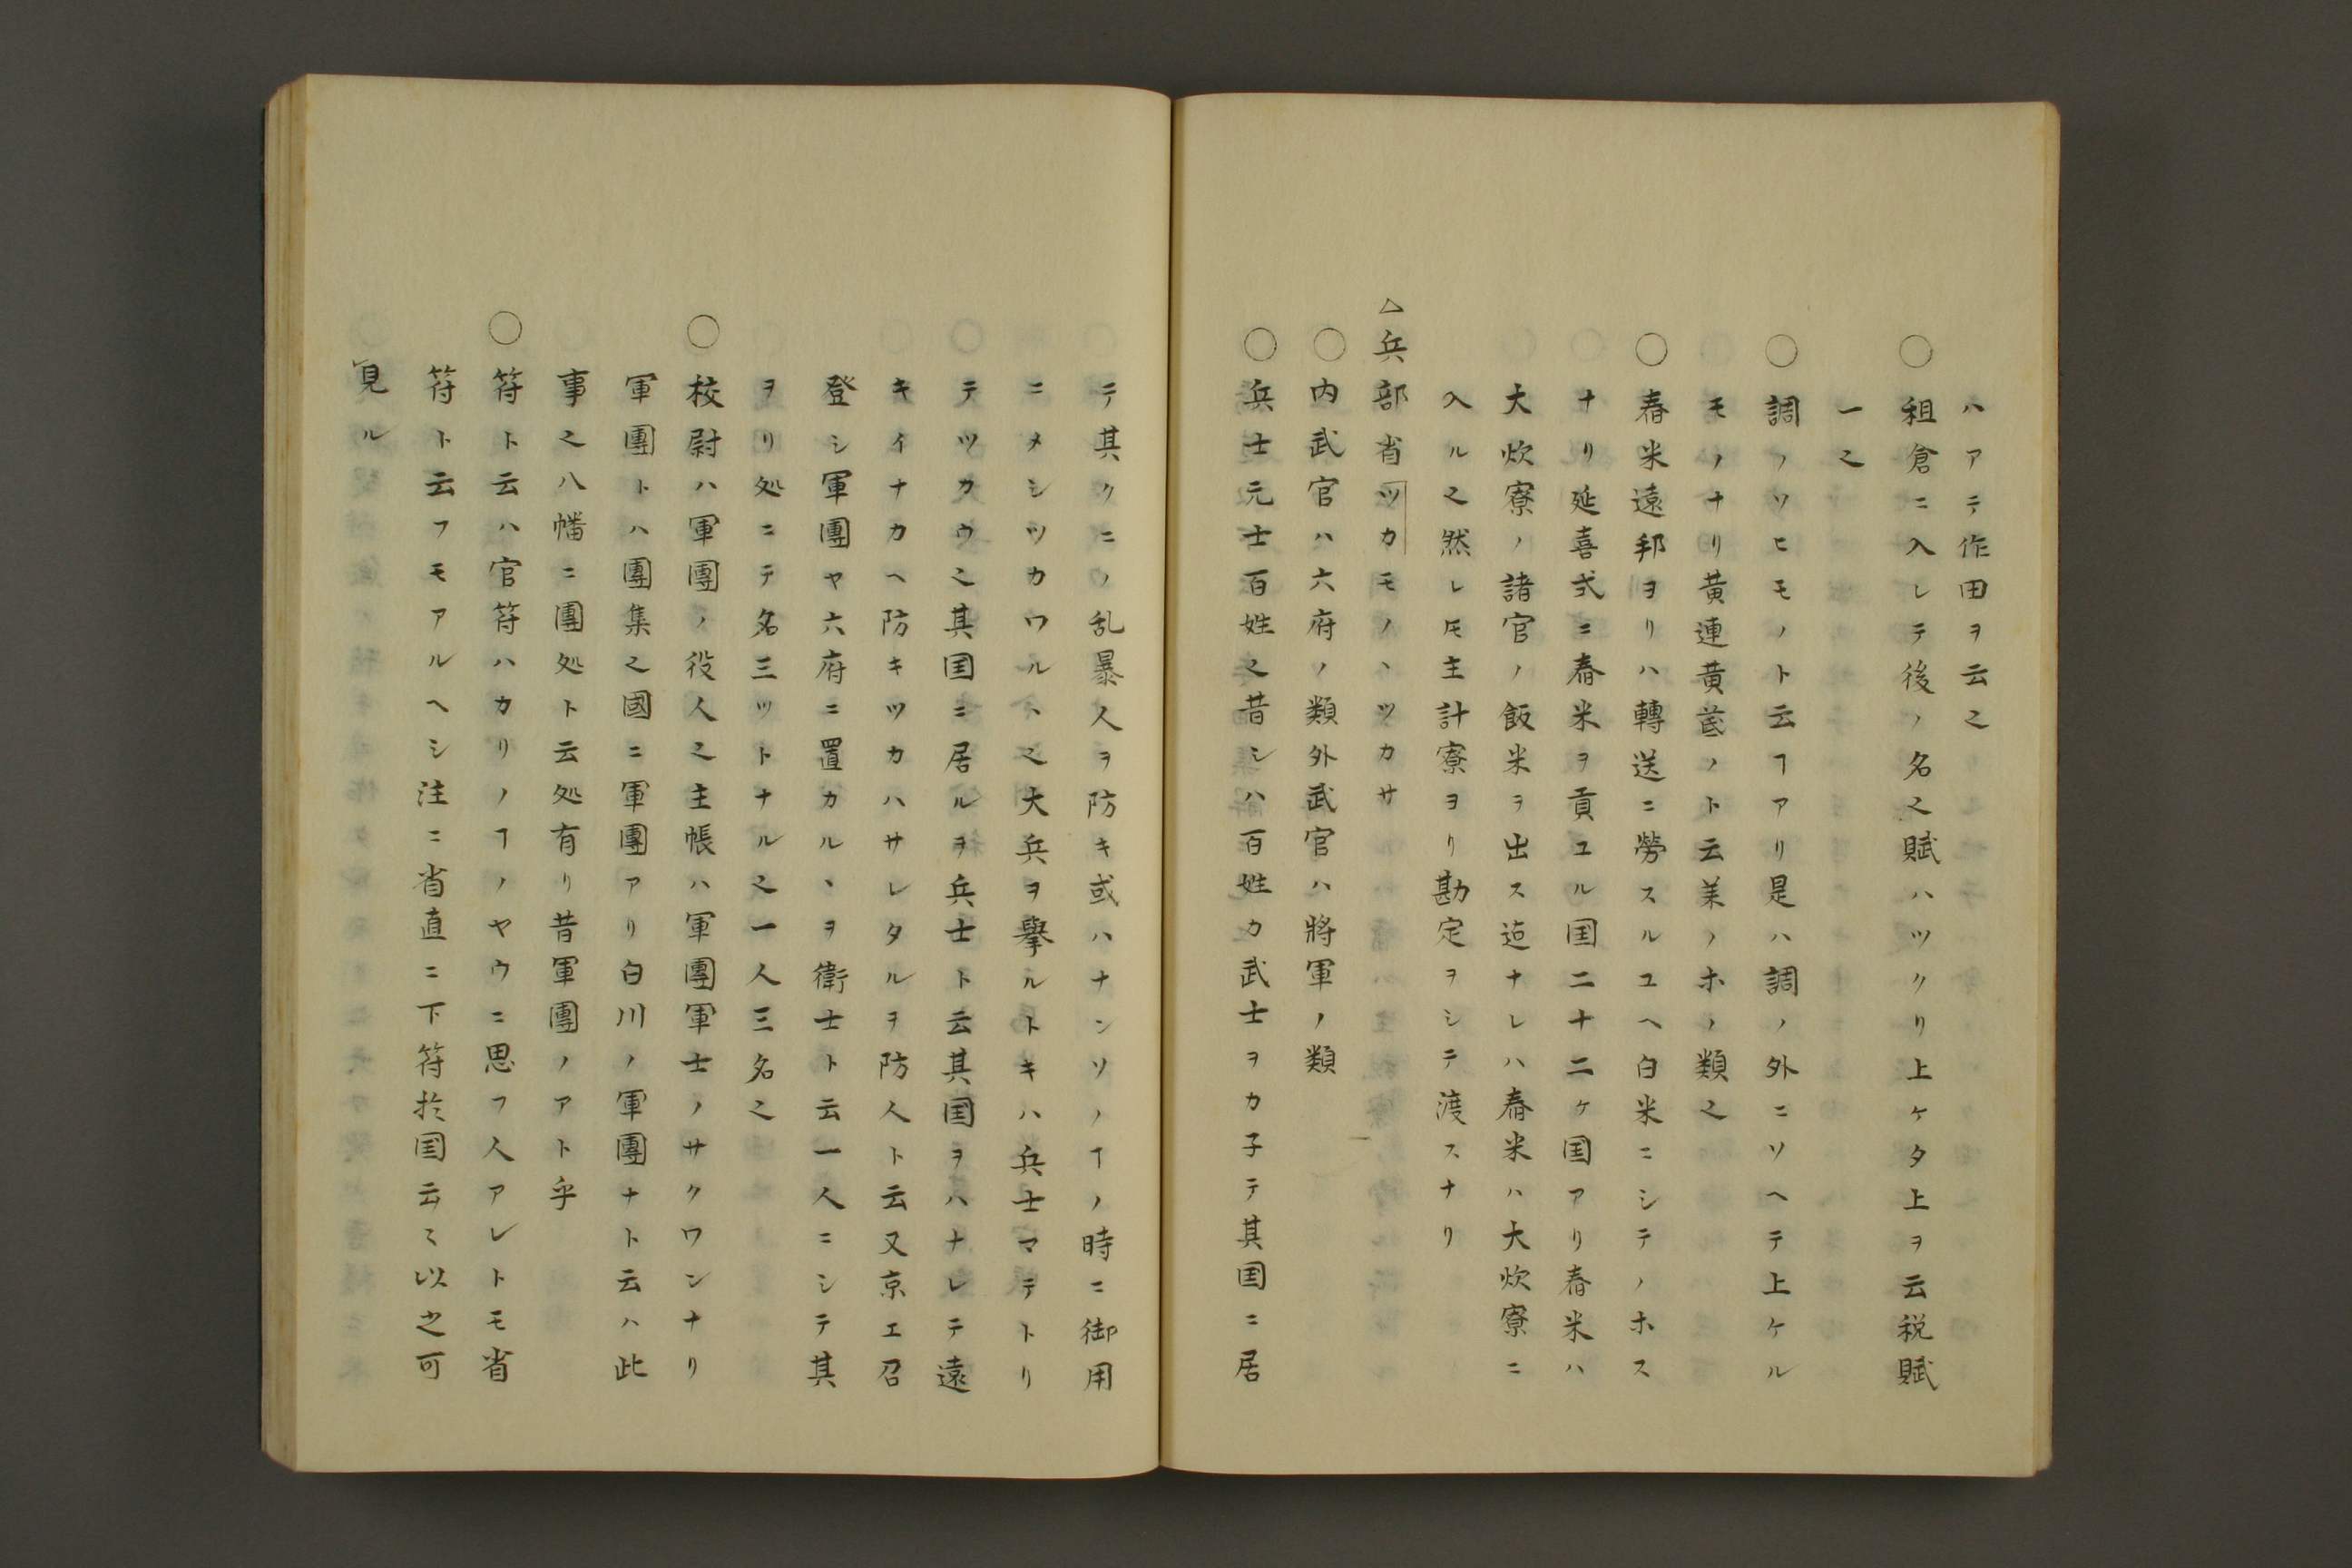 ハアテ作田ヲ云之
○租倉ニ入レテ後ノ名之賦ハツクリ上ケタ上ヲ云税賦
一之
○調ノソヒモノト云ヿアリ是ハ調ノ外ニソヘテ上ケル
モノナリ黄連黄蘗ノト云茉ノホノ類之
○舂米遠邦ヨリハ轉送ニ勞スルユヘ白米ニシテノホス
ナリ延喜式ニ舂米ヲ貢ユル国二十二ケ国アリ舂米ハ
大炊寮ノ諸官ノ飯米ヲ出ス
入ル之然レ𪜈主計寮ヨリ勘定ヲシテ渡スナリ
△兵部省ツカモノヽツカサ
○内武官ハ六府ノ類外武官ハ將軍ノ類
○兵士元士百姓之昔シハ百姓カ武士ヲカ子テ其国ニ居
テ其クニノ乱暴人ヲ防キ或ハナンソノヿノ時ニ御用
ニメシツカウルヽ之大兵ヲ擧ルトキハ兵士マテトリ
テツカウ之其国ニ居ルヲ兵士ト云其国ヲハナレテ遠
キイナカヘ防キツカハサレタルヲ防人ト云又京エ召
登シ軍團ヤ六府ニ置カルヽヲ衛士ト云一人ニシテ其
ヲリ処ニテ名三ツトナル之一人三名之
○校尉ハ軍團ノ役人之主帳ハ軍團軍士ノサクワンナリ
軍團トハ團集之國ニ軍團アリ白川ノ軍團ナト云ハ此
事之八幡ニ團処ト云処有リ昔軍團ノアト乎
○符ト云ハ官符ハカリノヿノヤウニ思フ人アレトモ省
符ト云フモアルヘシ注ニ省直ニ下符於国云〻以之可
見ル